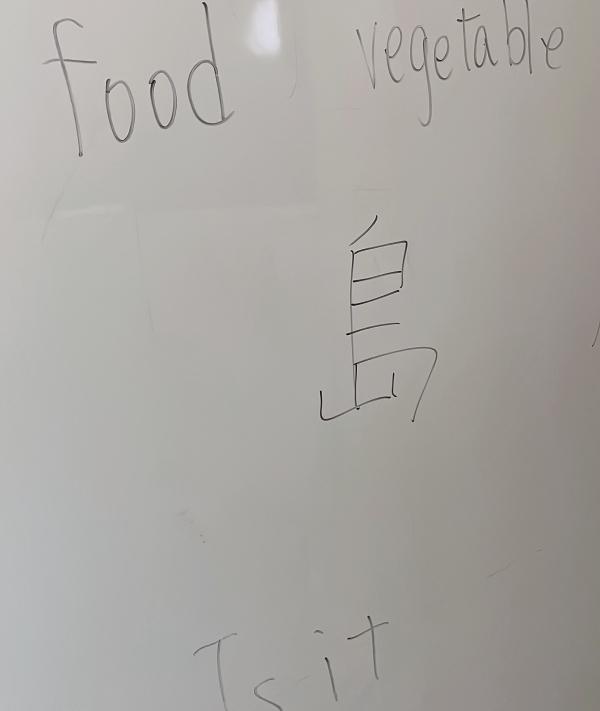 food vegetable
島
Is it